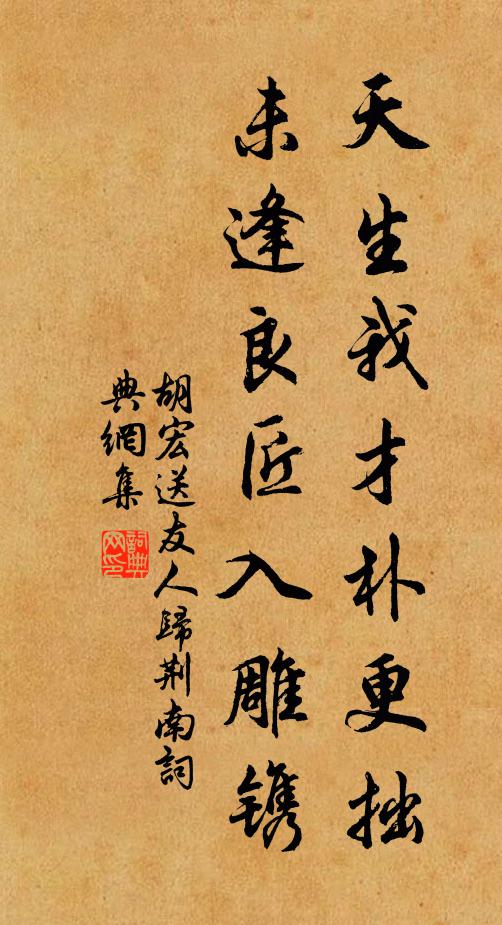 天生我才朴更拙
未逢良匠入雕镌
胡宏送友人歸荆南詞
典網集
詞典网印